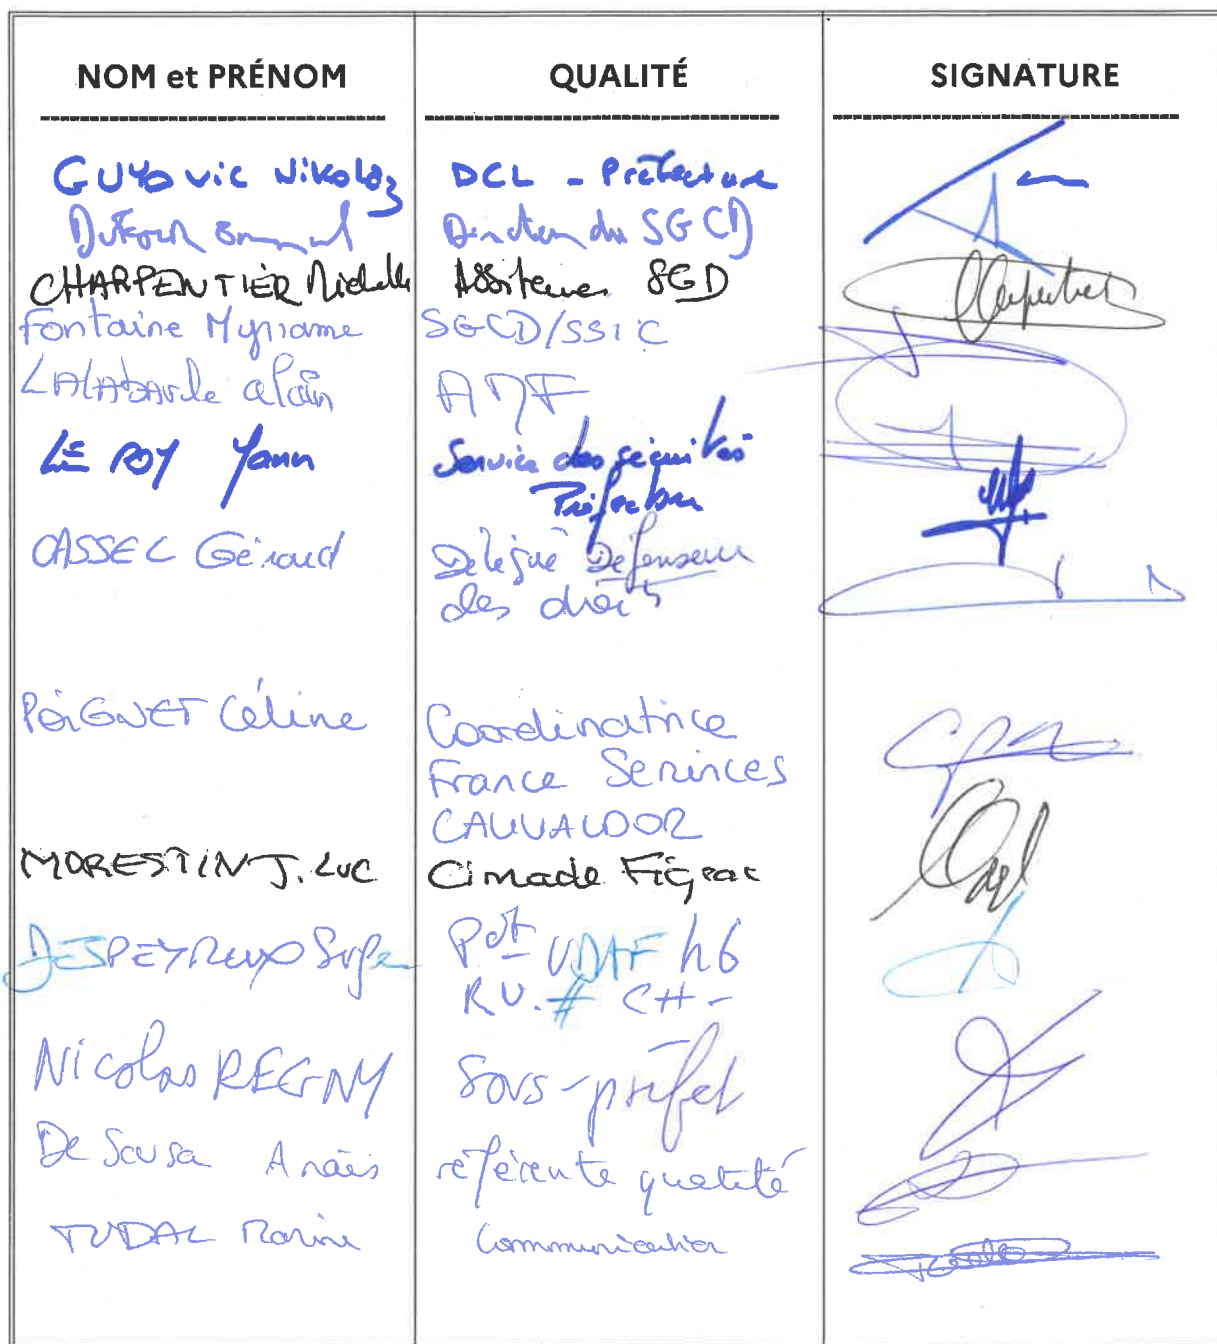 NOM et PRÉNOM QUALITÉ SIGNATURE
GUYOVIC Nikolaz DCL - Préfecture
Dufour Directeur du SGCD
CHARPENTIER Michelle SGD
Fontaine Myriame SGCD/SSIC
LALABARde alain AMF
LE ROY Yann Service des sécurités
Préfecture
CASSEC Géraud Délégué Défenseur
des droits
POIGNET Céline Coordinatrice
France Services
CAUVALDOR
MORESTIN J. Luc Cimade Figeac
DESPEYROUX Pdt UDAF 46
RU. # CH -
Nicolas REGNY Sous-préfet
De Sousa Anaïs référente qualité
TUDAL Marine Communication